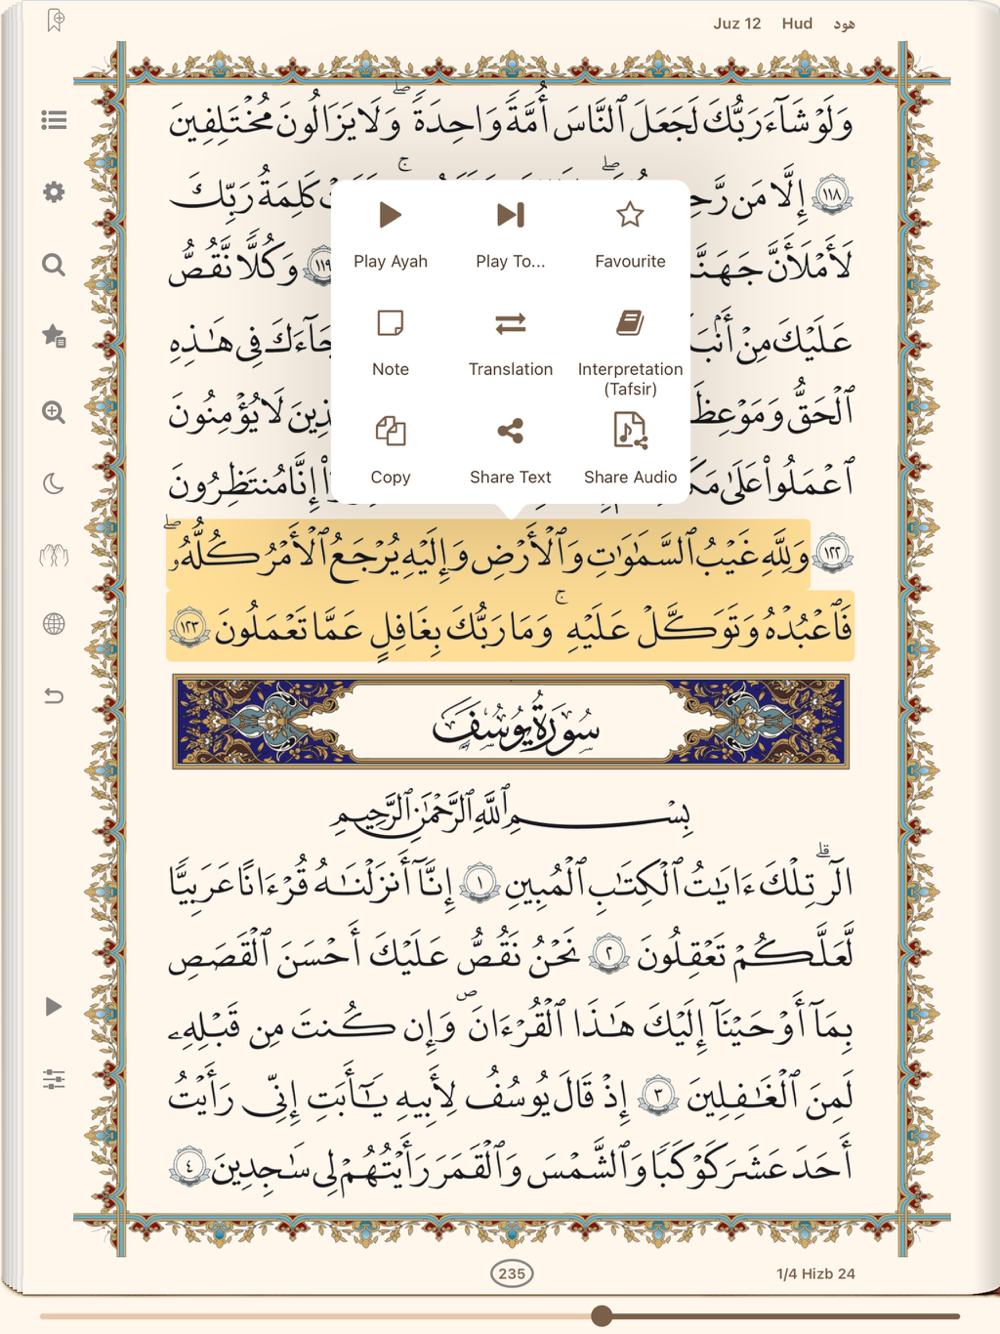 Juz 12 Hud هود
وَلَوْ شَآءَ رَبُّكَ لَجَعَلَ ٱلنَّاسَ أُمَّةً وَٰحِدَةً ۖ وَلَا يَزَالُونَ مُخْتَلِفِينَ
١١٨ إِلَّا مَن رَّحِ كَلِمَةُ رَبِّكَ
لَأَمْلَأَنَّ جَهَنَّ ١١٩ وَكُلًّا نَّقُصُّ
عَلَيْكَ مِنْ أَنۢبَ جَآءَكَ فِى هَـٰذِهِ
ٱلْحَقُّ وَمَوْعِظَ ذِينَ لَا يُؤْمِنُونَ
ٱعْمَلُوا۟ عَلَىٰ مَكَ إِنَّا مُنتَظِرُونَ
Play Ayah Play To... Favourite
Note Translation Interpretation (Tafsir)
Copy Share Text Share Audio
١٢٢ وَلِلَّهِ غَيْبُ ٱلسَّمَـٰوَٰتِ وَٱلْأَرْضِ وَإِلَيْهِ يُرْجَعُ ٱلْأَمْرُ كُلُّهُۥ ۖ
فَٱعْبُدْهُ وَتَوَكَّلْ عَلَيْهِ ۚ وَمَا رَبُّكَ بِغَـٰفِلٍ عَمَّا تَعْمَلُونَ ١٢٣
سُورَةُ يُوسُفَ
بِسْمِ ٱللَّهِ ٱلرَّحْمَـٰنِ ٱلرَّحِيمِ
الٓر ۚ تِلْكَ ءَايَـٰتُ ٱلْكِتَـٰبِ ٱلْمُبِينِ ١ إِنَّآ أَنزَلْنَـٰهُ قُرْءَٰنًا عَرَبِيًّا
لَّعَلَّكُمْ تَعْقِلُونَ ٢ نَحْنُ نَقُصُّ عَلَيْكَ أَحْسَنَ ٱلْقَصَصِ
بِمَآ أَوْحَيْنَآ إِلَيْكَ هَـٰذَا ٱلْقُرْءَانَ وَإِن كُنتَ مِن قَبْلِهِۦ
لَمِنَ ٱلْغَـٰفِلِينَ ٣ إِذْ قَالَ يُوسُفُ لِأَبِيهِ يَـٰٓأَبَتِ إِنِّى رَأَيْتُ
أَحَدَ عَشَرَ كَوْكَبًا وَٱلشَّمْسَ وَٱلْقَمَرَ رَأَيْتُهُمْ لِى سَـٰجِدِينَ ٤
235 1/4 Hizb 24